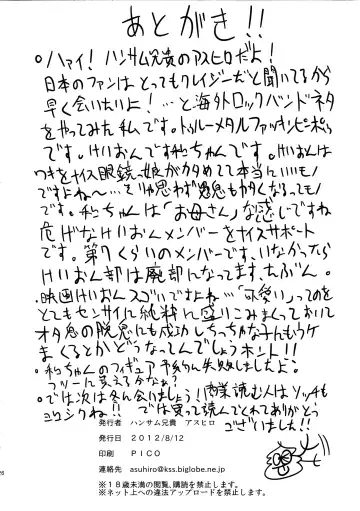 あとがき!!
○ハァイ! ハンサム兄貴のアスヒロだよ!
日本のファンはとってもクレイジーだと聞いてるから
早く会いたいよ!…と海外ロックバンドネタ
をやってみた私です。トゥルーメタルファッキンピポゥ
です。けいおんです和ちゃんです。けいおんは
わきをナイス眼鏡っ娘がかためてて本当にいいモノ
ですよね〜…
です。和ちゃんは「お母さん」な感じですね
危げなけいおんメンバーをナイスサポート
です。第7くらいのメンバーです、いなかったら
けいおん部は廃部になってます、たぶん。
・映画けいおんスゴいですよね…「可愛い」ってのを
とてもセンサイに純粋に盛りこみまくっておいて
オタ息の脱臭にも成功しちっちゃな子にもウケ
まくるとかどうなってんでしょうホント!!
・和ちゃんのフィギュア予約失敗しましたよ。
フツーに買えるかなぁ?
○では次は冬に会いましょう!肉業読む人はソッチも
ヨロシクね!! では買って読んでくれてありがとう
ございました!!
発行者 ハンサム兄貴 アスヒロ
発行日 2012/8/12
印刷 PICO
連絡先 asuhiro@kss.biglobe.ne.jp
※18歳未満の閲覧、購読を禁止します。
※ネット上への違法アップロードを禁止します。